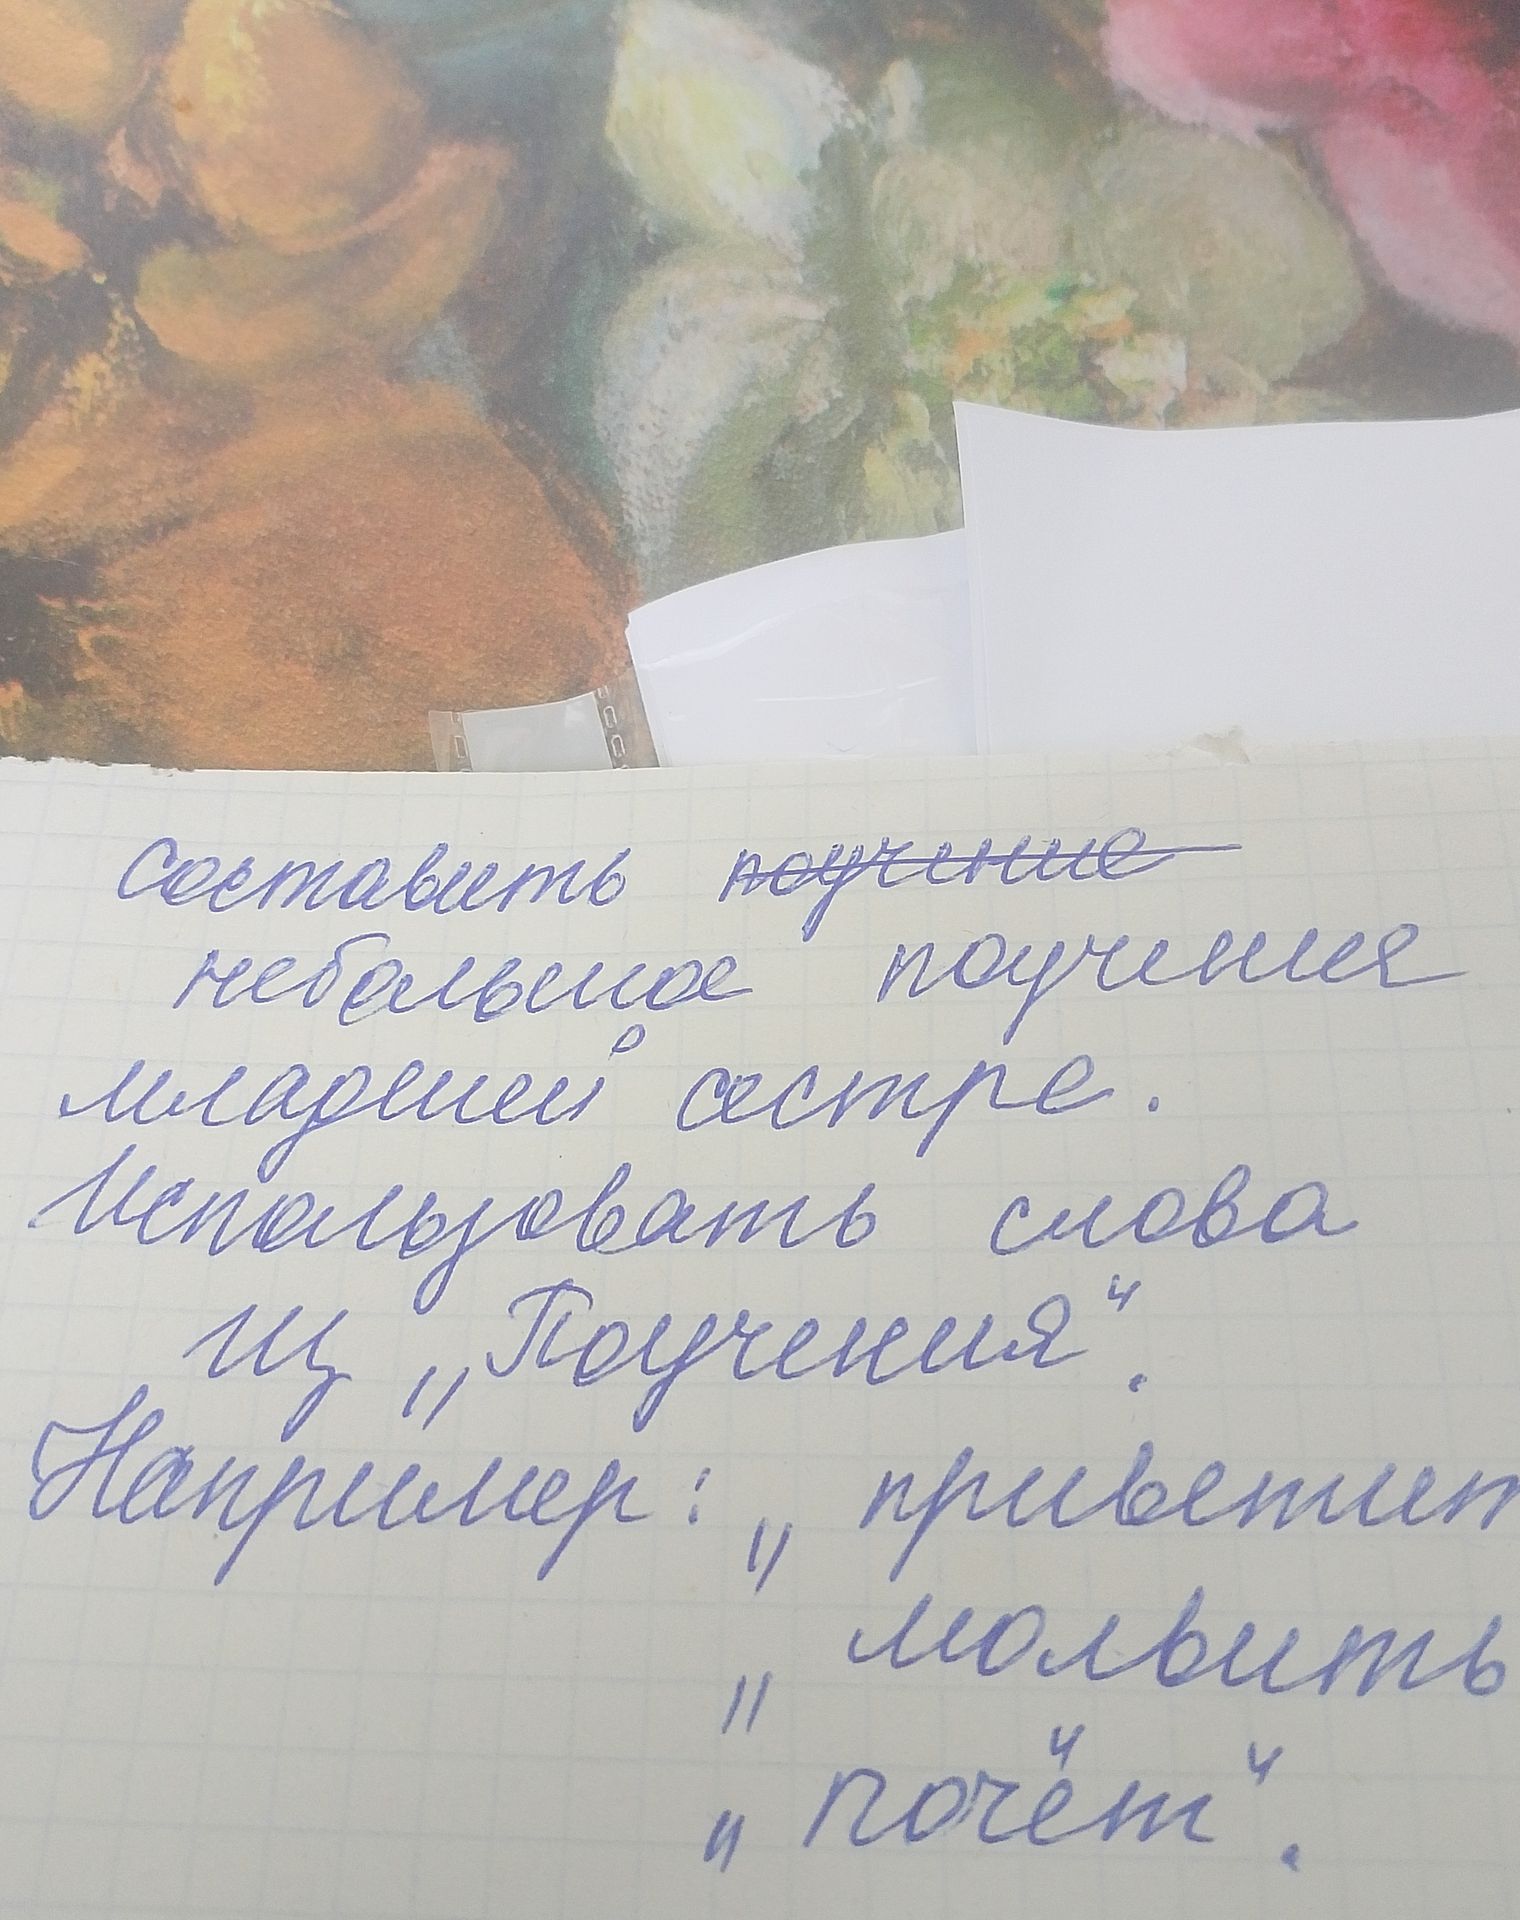 Составить поучение
небольшое поучения
младшей сестре.
Использовать слова
из „Поучения“.
Например: „приветит
„молвить
„почёт“.